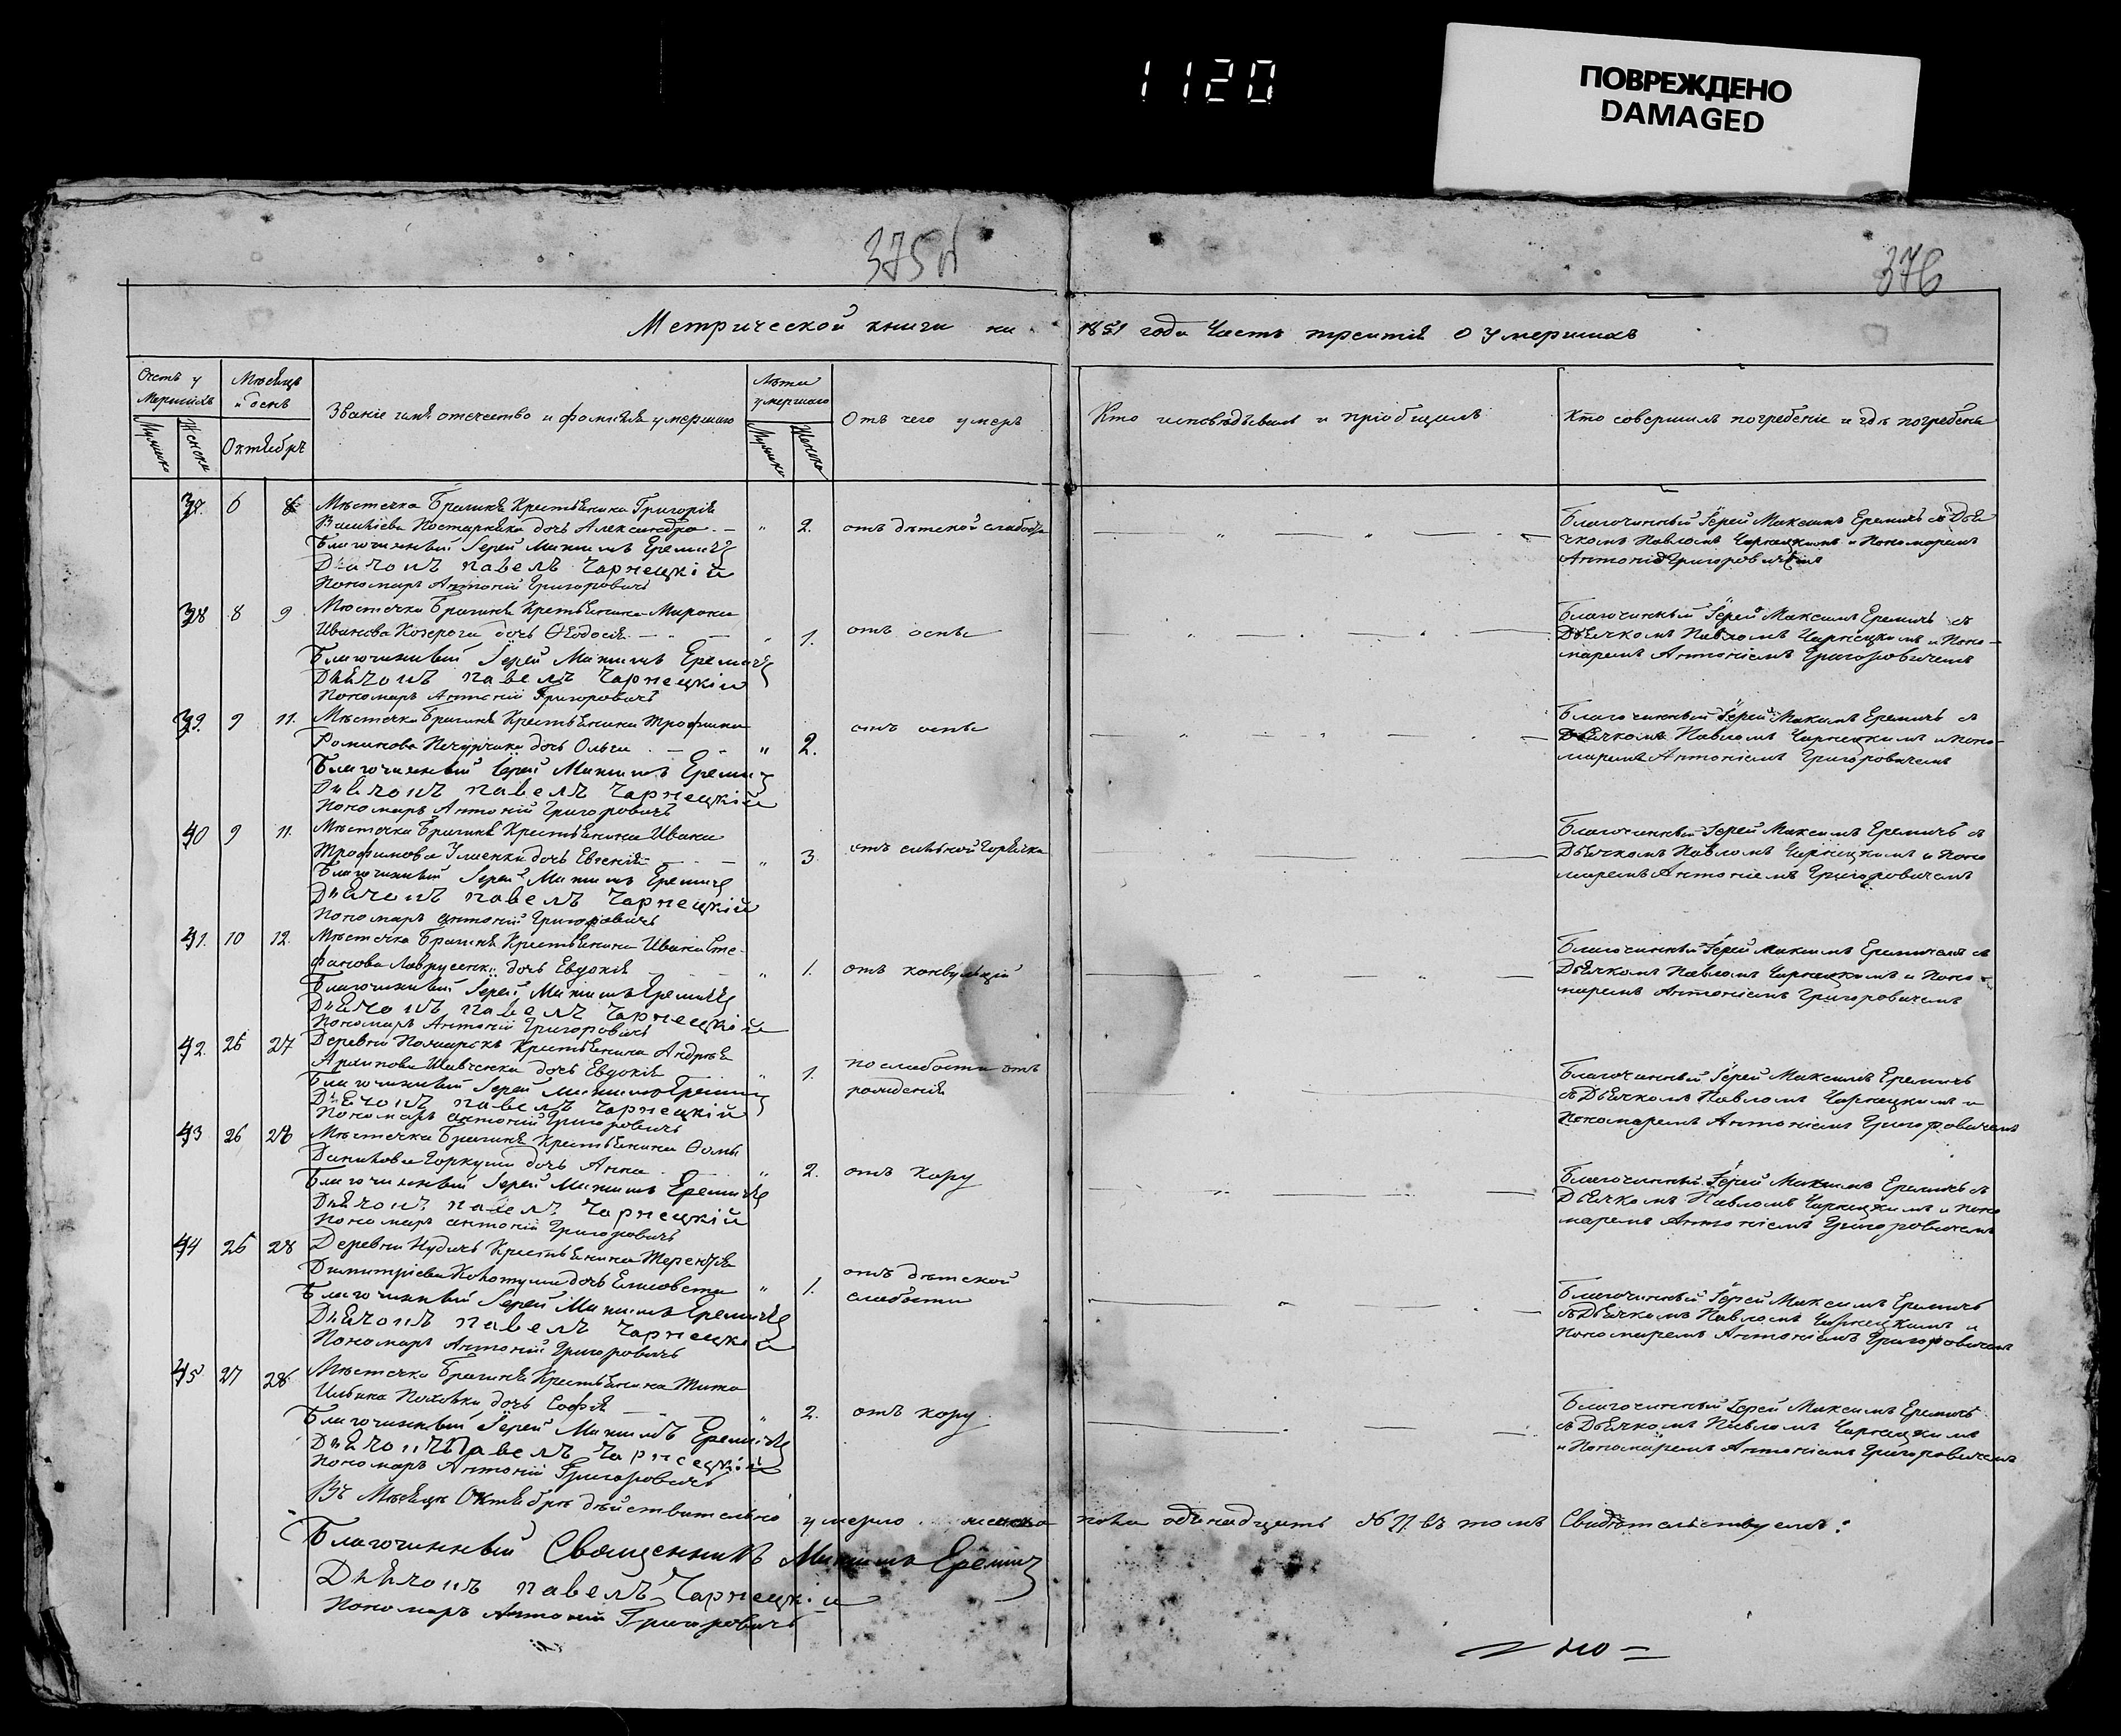 1120
ПОВРЕЖДЕНО
DAMAGED
376
Метрической книги на 1851 года Часть третія О Умершихъ
Счетъ у
мершихъ
Мужеска
Женска
Мѣсяцъ
и день
Октябрь
Званіе имя отечество и фамилія умершаго
Лѣта
умершаго
Мужеска
Женска
Отъ чего умеръ
Кто исповѣдывалъ и пріобщилъ
Кто совершилъ погребеніе и гдѣ погребены
6 Мѣстечка Брагина Крестьянина Григорія
дочь Александра 2. отъ дѣтской слабости
Благочинный Іерей Максимъ Еремичъ
Дьячокъ павелъ Чарнецкій
Пономарь Антоній Григоровичъ
Благочинный Іерей Максимъ Еремичъ съ Дья
чкомъ Павломъ Чарнецкимъ и Пономаремъ
Антоніемъ Григоровичемъ
38 8 9 Мѣстечка Брагина Крестьянина Мирона
Иванова Козерога дочь Ѳеодосія 1. отъ оспы
Благочинный Іерей Максимъ Еремичъ
Дьячокъ павелъ Чарнецкій
Пономарь Антоній Григоровичъ
Благочинный Іерей Максимъ Еремичъ съ
Дьячкомъ Павломъ Чарнецкимъ и Поно-
маремъ Антоніемъ Григоровичемъ
39. 9 11. Мѣстечка Брагина Крестьянина Трофима
Романова дочь Ольга 2. отъ оспы
Благочинный Іерей Максимъ Еремичъ
Дьячокъ павелъ Чарнецкій
Пономарь Антоній Григоровичъ
Благочинный Іерей Максимъ Еремичъ съ
Дьячкомъ Павломъ Чарнецкимъ и Поно-
маремъ Антоніемъ Григоровичемъ
40 9 11. Мѣстечка Брагина Крестьянина Ивана
Трофимова дочь Евгенія 3. отъ сильной горячки
Благочинный Іерей Максимъ Еремичъ
Дьячокъ павелъ Чарнецкій
Пономарь антоній Григоровичъ
Благочинный Іерей Максимъ Еремичъ съ
Дьячкомъ Павломъ Чарнецкимъ и Поно
маремъ Антоніемъ Григоровичемъ
41. 10 12. Мѣстечка Брагина Крестьянина Ивана Сте-
фанова дочь Евдокія 1. отъ конвульцій
Благочинный Іерей Максимъ Еремичъ
Дьячокъ павелъ Чарнецкій
Пономарь Антоній Григоровичъ
Благочинный Іерей Максимъ съ
Дьячкомъ Павломъ Чарнецкимъ и Поно-
маремъ Антоніемъ Григоровичемъ
42. 27 Деревни Крестьянина Андрея
Архипова Шевченка дочь Евдокія 1. по слабости отъ
рожденія
Благочинный Іерей Максимъ Еремичъ
Дьячокъ павелъ Чарнецкій
Пономарь антоній Григоровичъ
Благочинный Іерей Максимъ Еремичъ
съ Дьячкомъ Павломъ Чарнецкимъ и
Пономаремъ Антоніемъ Григоровичемъ
43 26 28 Мѣстечка Брагина Крестьянина Ѳомы
Данилова дочь Анна 2. отъ кору
Благочинный Іерей Максимъ Еремичъ
Дьячокъ павелъ Чарнецкій
Пономарь антоній Григоровичъ
Благочинный Іерей Максимъ Еремичъ съ
Дьячкомъ Павломъ Чарнецкимъ и Поно
маремъ Антоніемъ Григоровичемъ
44 28 Деревни Крестьянина Терентія
Димитріева дочь Елисавета 1. отъ дѣтской
слабости
Благочинный Іерей Максимъ Еремичъ
Дьячокъ павелъ Чарнецкій
Пономарь Антоній Григоровичъ
Благочинный Іерей Максимъ Еремичъ
съ Дьячкомъ Павломъ Чарнецкимъ и
Пономаремъ Антоніемъ Григоровичемъ
45 27 28. Мѣстечка Брагина Крестьянина Тита
дочь Софія 2. отъ кору
Благочинный Іерей Максимъ Еремичъ
Дьячокъ Павелъ Чарнецкій
Пономарь Антоній Григоровичъ
Благочинный Іерей Максимъ Еремичъ
съ Дьячкомъ Павломъ Чарнецкимъ
и Пономаремъ Антоніемъ Григоровичемъ
Въ Мѣсяцѣ Октябрѣ дѣйствительно умерло женска пола одинадцать въ томъ Свидѣтельствуемъ:
Благочинный Священникъ Максимъ Еремичъ
Дьячокъ павелъ Чарнецкій
Пономарь Антоній Григоровичъ